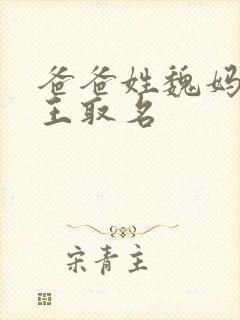 爸爸姓魏妈
王取名
宋青主